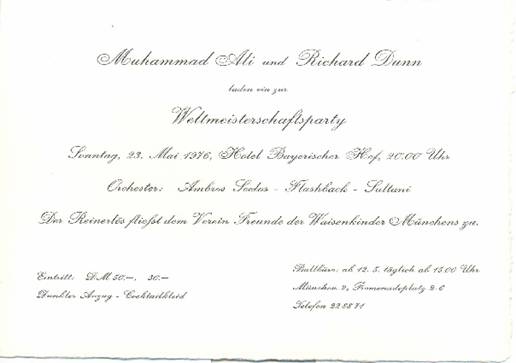 Muhammad Ali und Richard Dunn
laden ein zur
Weltmeisterschaftsparty
Sonntag, 23. Mai 1976, Hotel Bayerischer Hof, 20.00 Uhr
Orchester: Ambros Seelos - Flashback - Sultani
Der Reinerlös fließt dem Verein Freunde der Waisenkinder Münchens zu.
Eintritt: DM 50.—, 30.—
Dunkler Anzug - Cocktailkleid
Ballbüro: ab 12. 5. täglich ab 15.00 Uhr
München 2, Promenadeplatz 2-6
Telefon 22 88 71